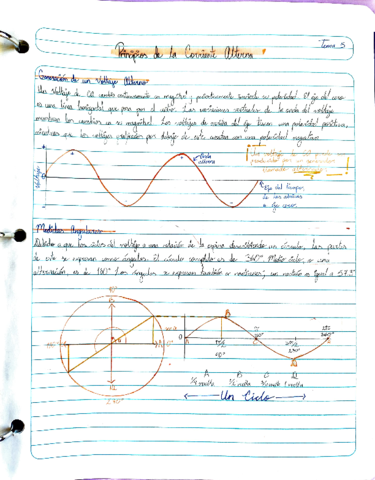 Tema 5
Principios de la Corriente Alterna
Generación de un Voltaje Alterno
Un voltaje de CA cambia continuamente en magnitud y periódicamente invierte su polaridad. El eje del cero
es una línea horizontal que pasa por el centro. Las variaciones verticales de la onda del voltaje
muestran los cambios en su magnitud. Los voltajes de encima del eje tienen una polaridad positiva,
mientras que los voltajes verticales por debajo de este cuentan con una polaridad negativa.
Voltaje
Onda alterna
Un voltaje de CA puede
producirse por un generador
llamado
Eje del tiempo
de los
o eje cero
Medidas Angulares
Debido a que los ciclos del voltaje a una rotación de la espira describiendo un círculo, las partes
de este se expresan como ángulos. El círculo completo es de 360°. Medio ciclo, o una
alternación es de 180°. Los ángulos se expresan también en radianes; un radián es igual a 57.3°
90°
180°
270°
B
A
π/2
90°
π
180°
C
3π/2
270°
D
2π
360°
A B C D
1/4 vuelta 1/2 vuelta 3/4 vuelta 1 vuelta
Un Ciclo